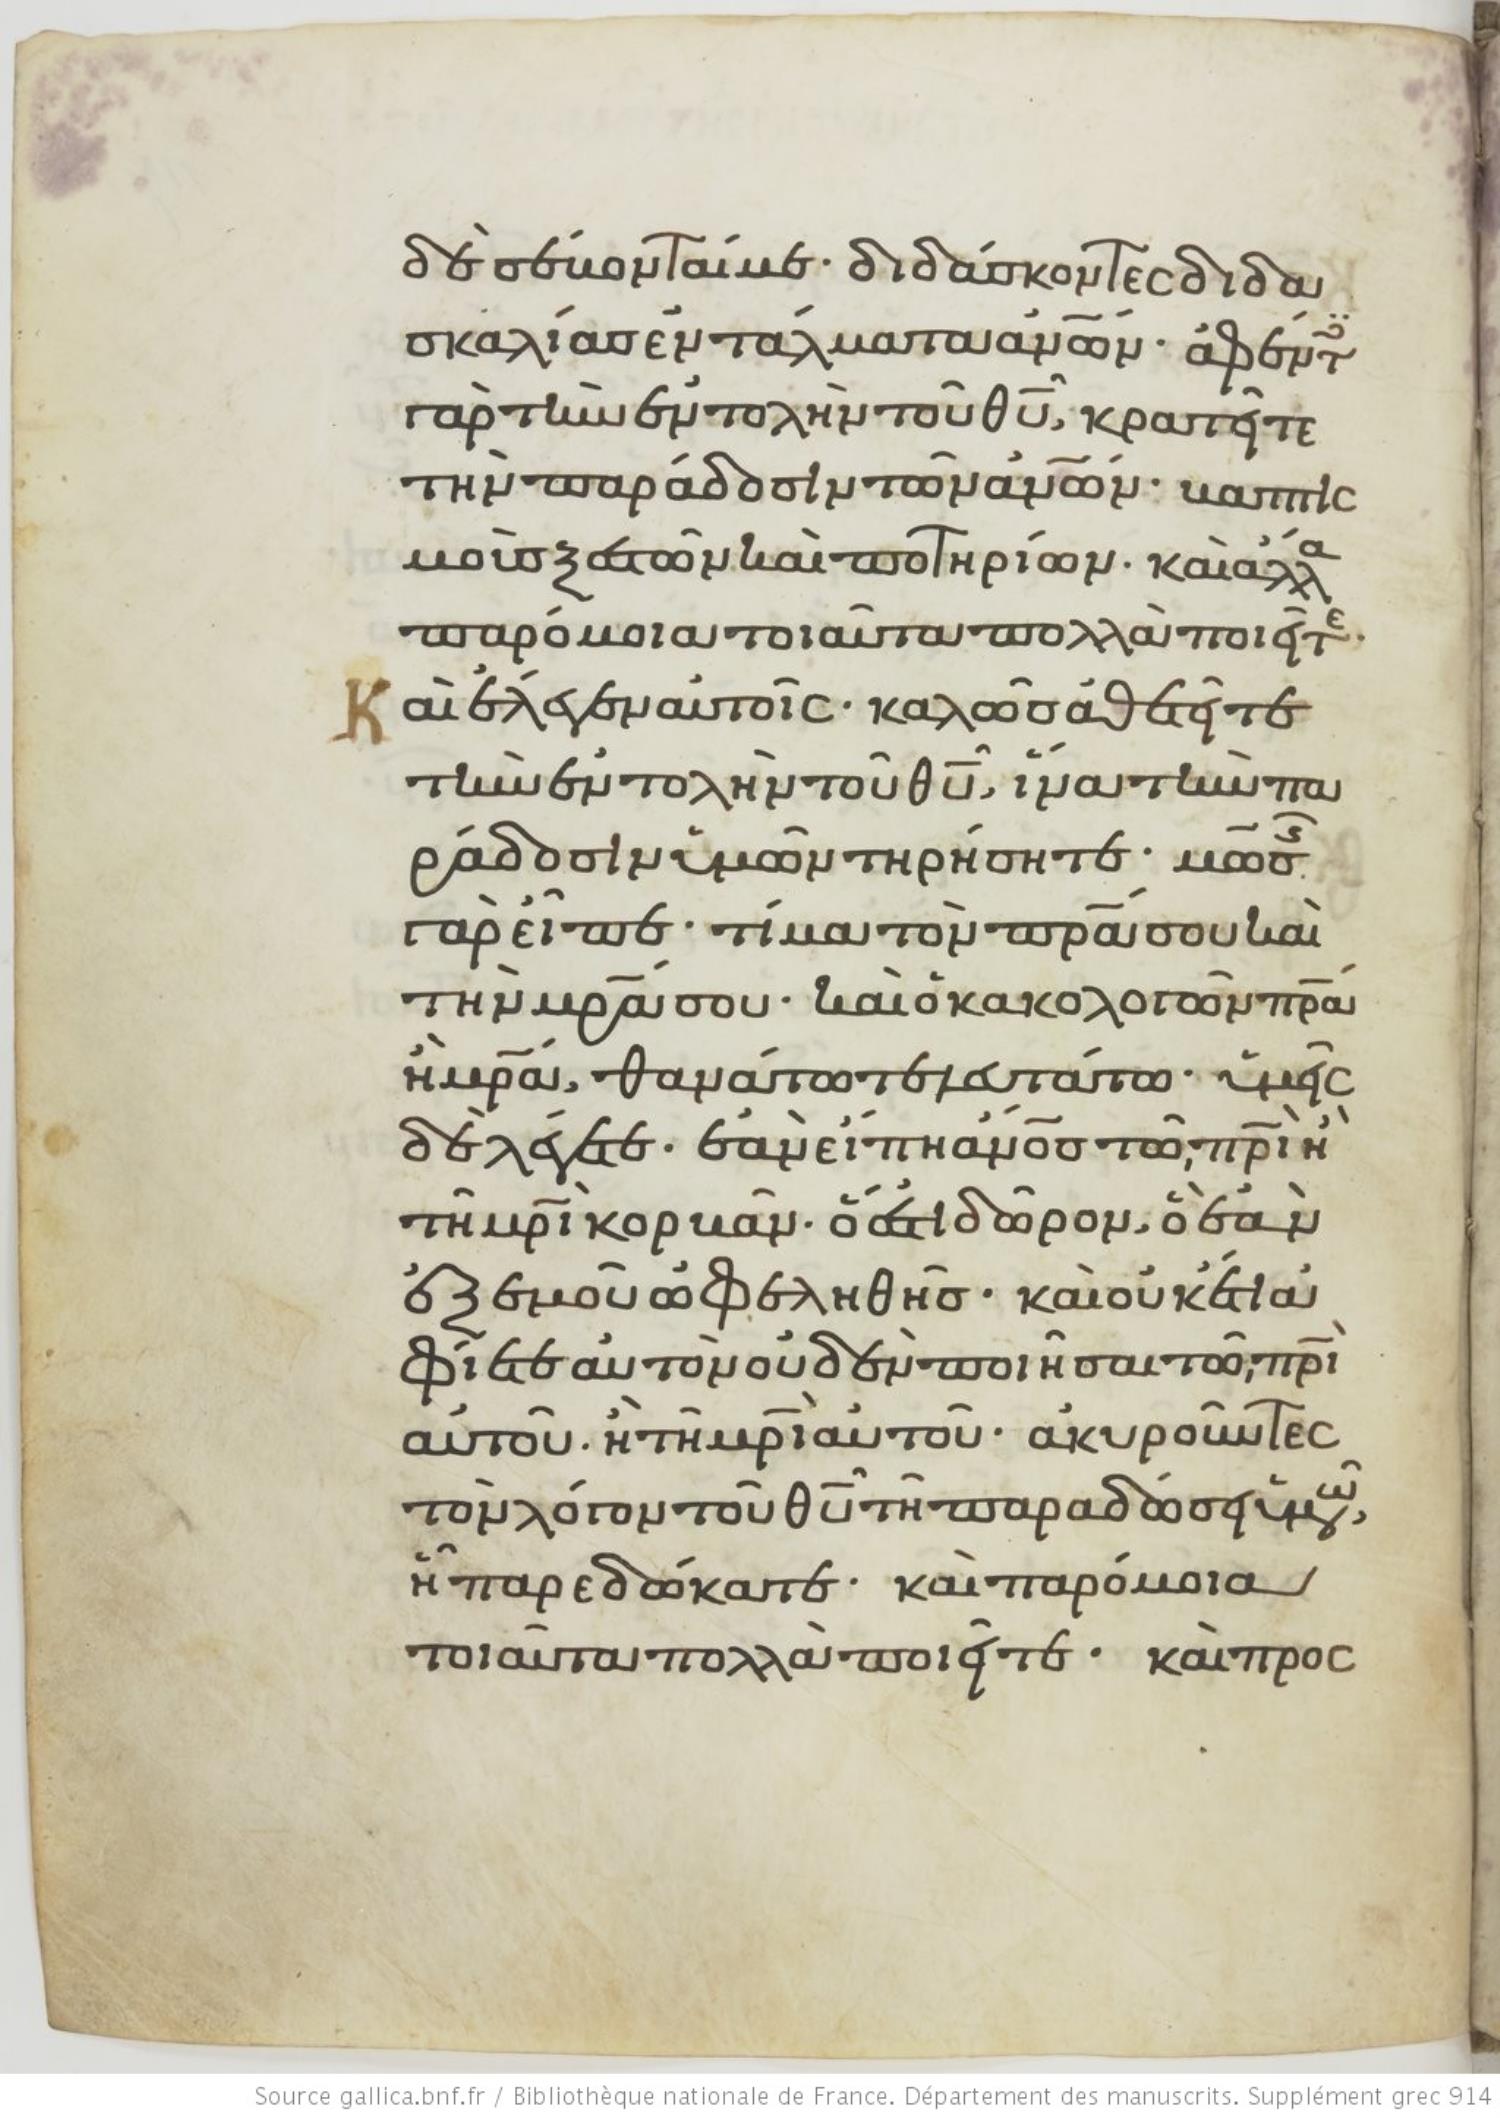 δὲ σέβονταί με· διδάσκοντες διδα
σκαλίας ἐντάλματα ἀν̅ω̅ν· ἀφέντ(ες)
γὰρ τὴν ἐντολὴν τοῦ θ̅υ̅, κρατεῖτε
τὴν παράδοσιν τῶν ἀν̅ω̅ν· βαπτις
μοὺς ξεστῶν καὶ ποτηρίων· καὶ ἄλλα
παρόμοια τοιαῦτα πολλὰ ποιεῖτε·
Καὶ ἔλεγεν αὐτοῖς· καλῶς ἀθετεῖτε
τὴν ἐντολὴν τοῦ θ̅υ̅, ἵνα τὴν πα
ράδοσιν ὑμῶν τηρήσητε· μωσ(ῆς)
γὰρ εἶπε· τίμα τὸν π̅ρ̅α̅ σου καὶ
τὴν μ̅ρ̅α̅ σου· καὶ ὁ κακολογῶν π̅ρ̅α̅
ἢ μ̅ρ̅α̅, θανάτω τελευτάτω· ὑμεῖς
δὲ λέγετε· ἐὰν εἴπη ἀν̅ο̅ς τῶ π̅ρ̅ι̅ ἢ
τῆ μ̅ρ̅ι̅ κορβᾶν· ὅ ἐστι δῶρον, ὃ ἐὰν
ἐξ ἐμοῦ ὠφεληθῆς· καὶ οὐκέτι ἀ
φίετε αὐτὸν οὐδὲν ποιῆσαι τῶ π̅ρ̅ι̅
αὐτοῦ· ἢ τῆ μ̅ρ̅ι̅ αὐτοῦ· ἀκυροῦντες
τὸν λόγον τοῦ θ̅υ̅ τῆ παραδόσει ὑμῶ(ν),
ἧ παρεδώκατε· καὶ παρόμοια
τοιαῦτα πολλὰ ποιεῖτε· καὶ προς
Source gallica.bnf.fr / Bibliothèque nationale de France. Département des manuscrits. Supplément grec 914